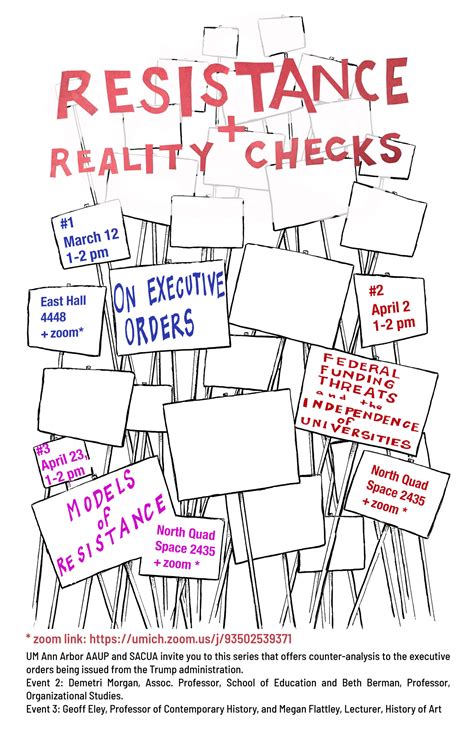 RESISTANCE
+
REALITY CHECKS
#1
March 12
1-2 pm
East Hall
4448
+ zoom*
ON EXECUTIVE
ORDERS
#2
April 2
1-2 pm
FEDERAL
FUNDING
THREATS
and the
INDEPENDENCE
of
UNIVERSITIES
North Quad
Space 2435
+ zoom *
#3
April 23,
1-2 pm
MODELS
of
RESISTANCE
North Quad
Space 2435
+ zoom *
* zoom link: https://umich.zoom.us/j/93502539371
UM Ann Arbor AAUP and SACUA invite you to this series that offers counter-analysis to the executive
orders being issued from the Trump administration.
Event 2: Demetri Morgan, Assoc. Professor, School of Education and Beth Berman, Professor,
Organizational Studies.
Event 3: Geoff Eley, Professor of Contemporary History, and Megan Flattley, Lecturer, History of Art